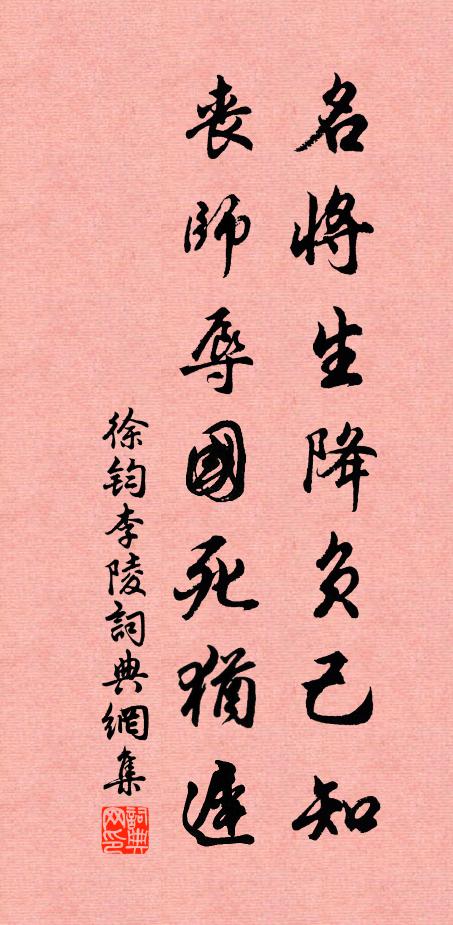 名將生降負己知
喪師辱國死猶遲
徐鈞李陵詞典網集
詞典網印